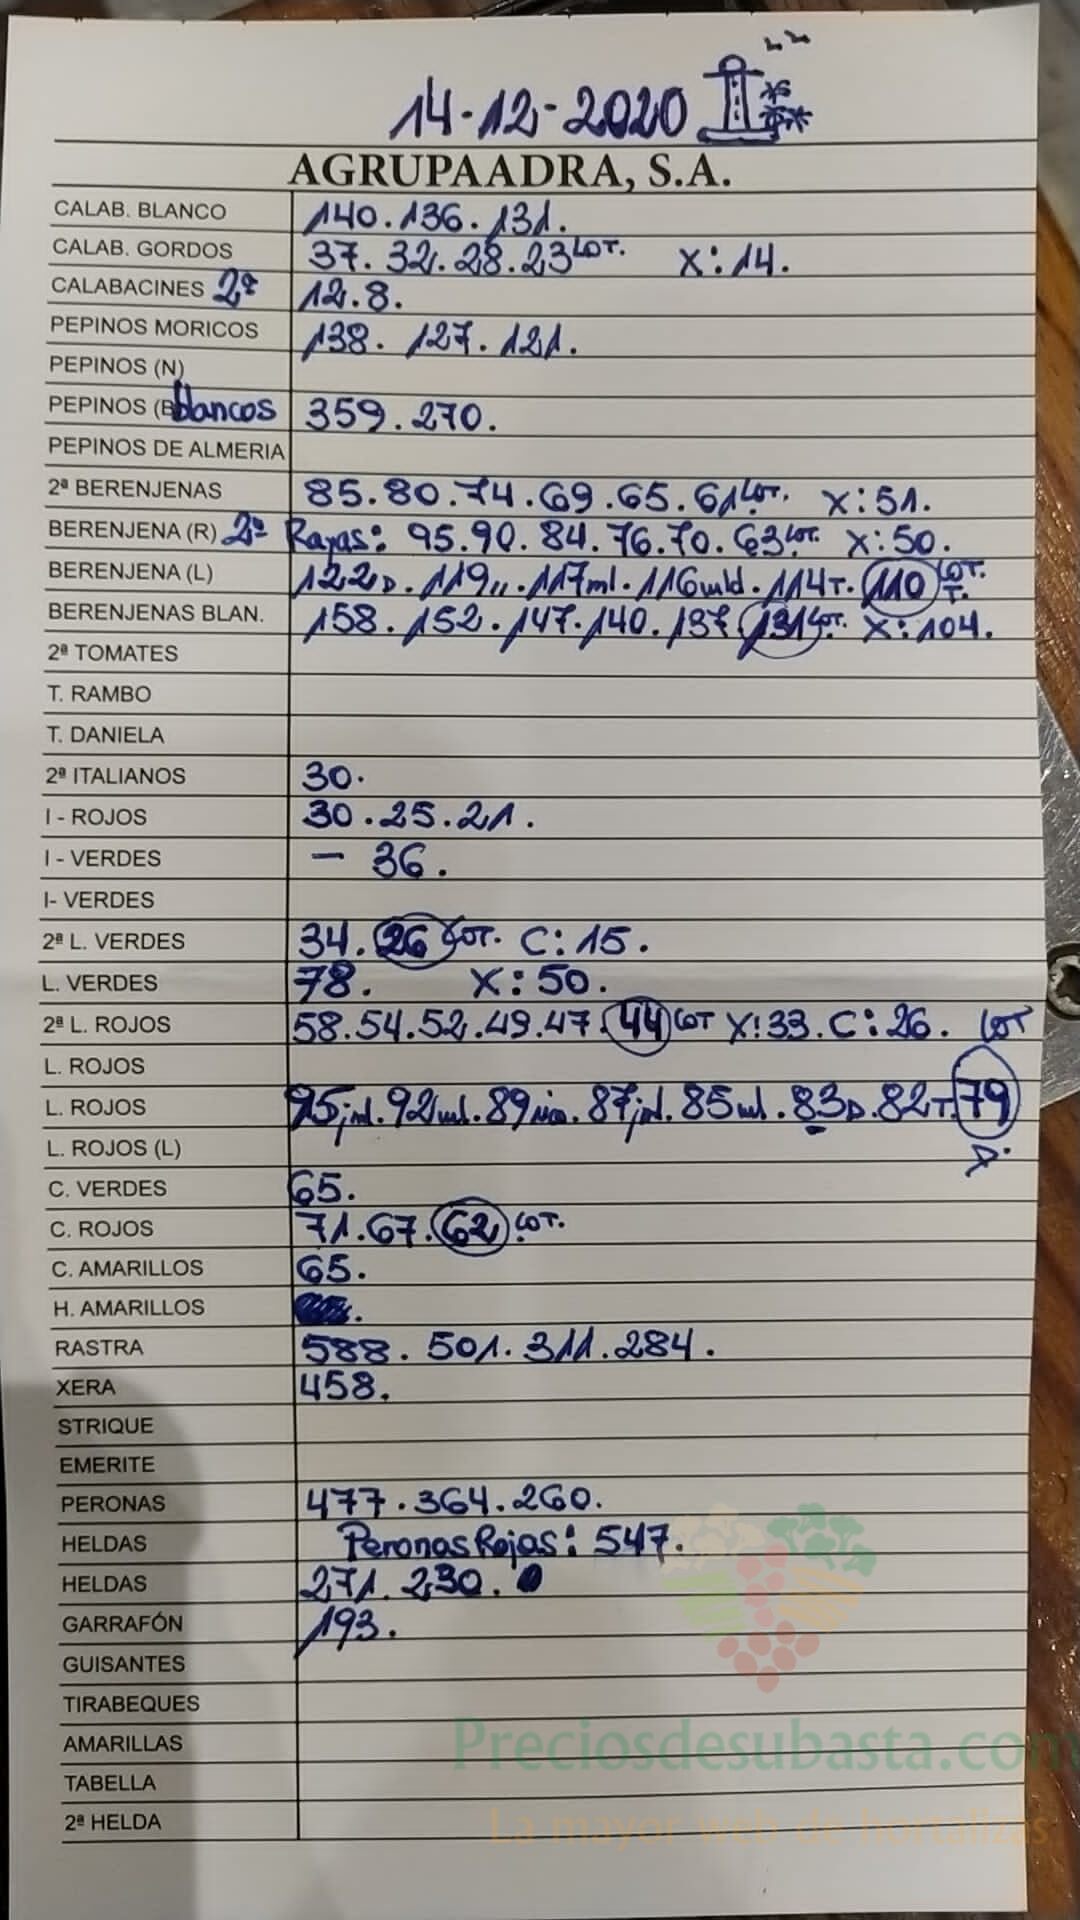 14-12-2020
AGRUPAADRA, S.A.
CALAB. BLANCO 140. 136. 131.
CALAB. GORDOS 37. 32. 28. 23 LOT. X: 14.
CALABACINES 2ª 12. 8.
PEPINOS MORICOS 138. 127. 121.
PEPINOS (N)
PEPINOS (B blancos 359. 270.
PEPINOS DE ALMERIA
2ª BERENJENAS 85. 80. 74. 69. 65. 61 LOT. X: 51.
BERENJENA (R) 2ª Rayas: 95. 90. 84. 76. 70. 63 LOT. X: 50.
BERENJENA (L) 122D. 119,,. 117ml. 116mld. 114T. 110 LOT. T.
BERENJENAS BLAN. 158. 152. 147. 140. 137. 131 LOT. X: 104.
2ª TOMATES
T. RAMBO
T. DANIELA
2ª ITALIANOS 30.
I - ROJOS 30. 25. 21.
I - VERDES — 36.
I- VERDES
2ª L. VERDES 34. 26 LOT. C: 15.
L. VERDES 78. X: 50.
2ª L. ROJOS 58. 54. 52. 49. 47. 44 LOT X: 33. C: 26. LOT
L. ROJOS
L. ROJOS 95 . 92 . 89 . 87 . 85 . 83D. 82T. 79
L. ROJOS (L)
C. VERDES 65.
C. ROJOS 71. 67. 62 LOT.
C. AMARILLOS 65.
H. AMARILLOS
RASTRA 588. 501. 311. 284.
XERA 458.
STRIQUE
EMERITE
PERONAS 477. 364. 260.
HELDAS Peronas Rojas: 547.
HELDAS 271. 230.
GARRAFÓN 193.
GUISANTES
TIRABEQUES
AMARILLAS
Preciosdesubasta.com
TABELLA
2ª HELDA
La mayor web de hortalizas